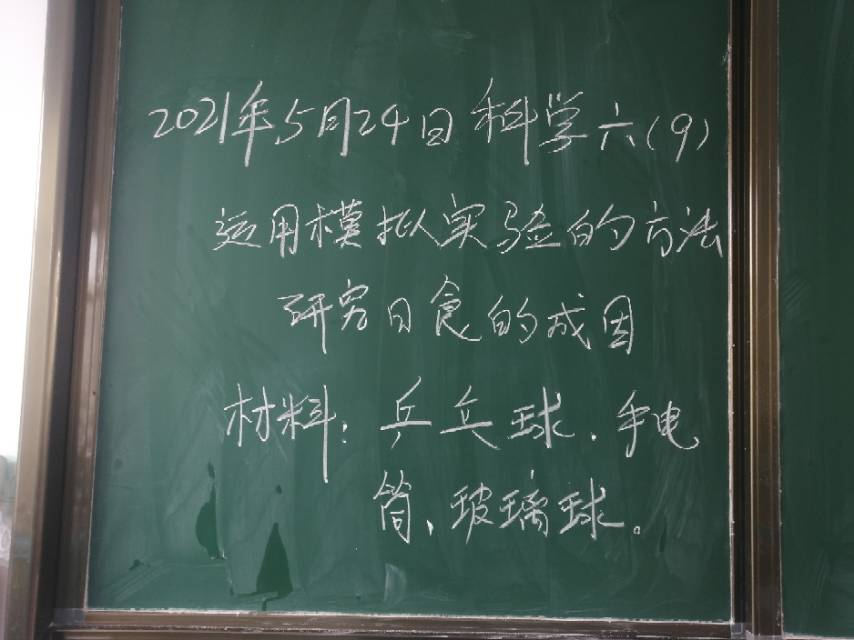 2021年5月24日 科学 六(9)
运用模拟实验的方法
研究日食的成因
材料：乒乓球、手电
筒、玻璃球。